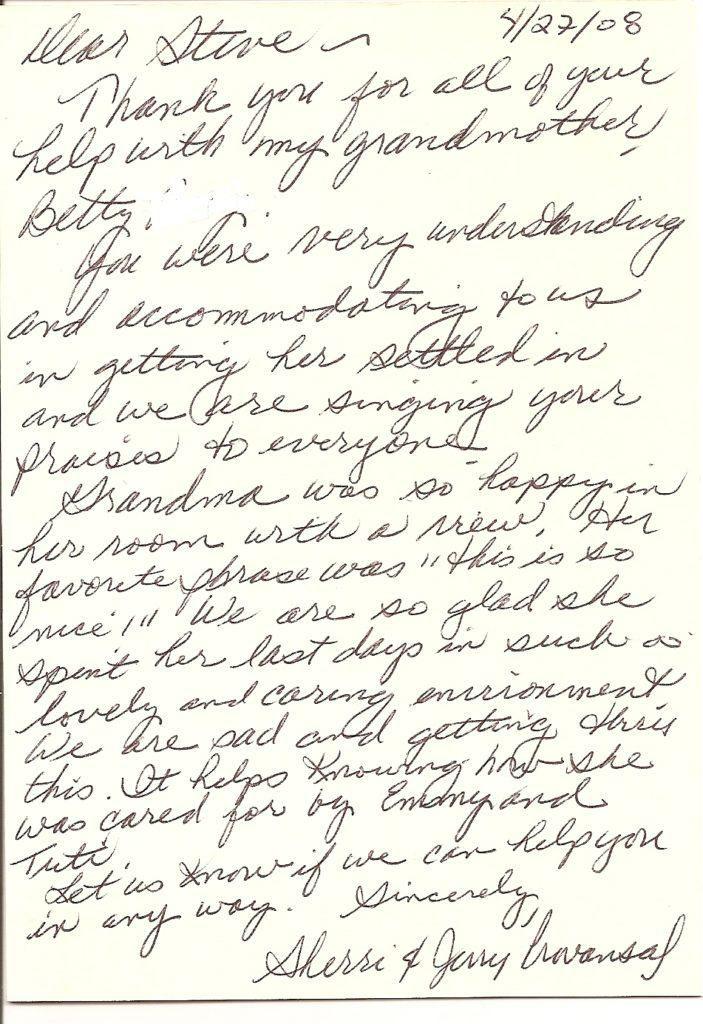 4/27/08
Dear Steve ~
Thank you for all of your
help with my grandmother,
Betty
You were very understanding
and accommodating to us
in getting her settled in
and we are singing your
praises to everyone.
Grandma was so happy in
her room with a view. Her
favorite phrase was "this is so
nice!" We are so glad she
spent her last days in such a
lovely and caring environment
We are sad and getting thru
this. It helps knowing how she
was cared for by Emmy and
Tuti.
Let us know if we can help you
in any way. Sincerely,
Sherri & Jerry